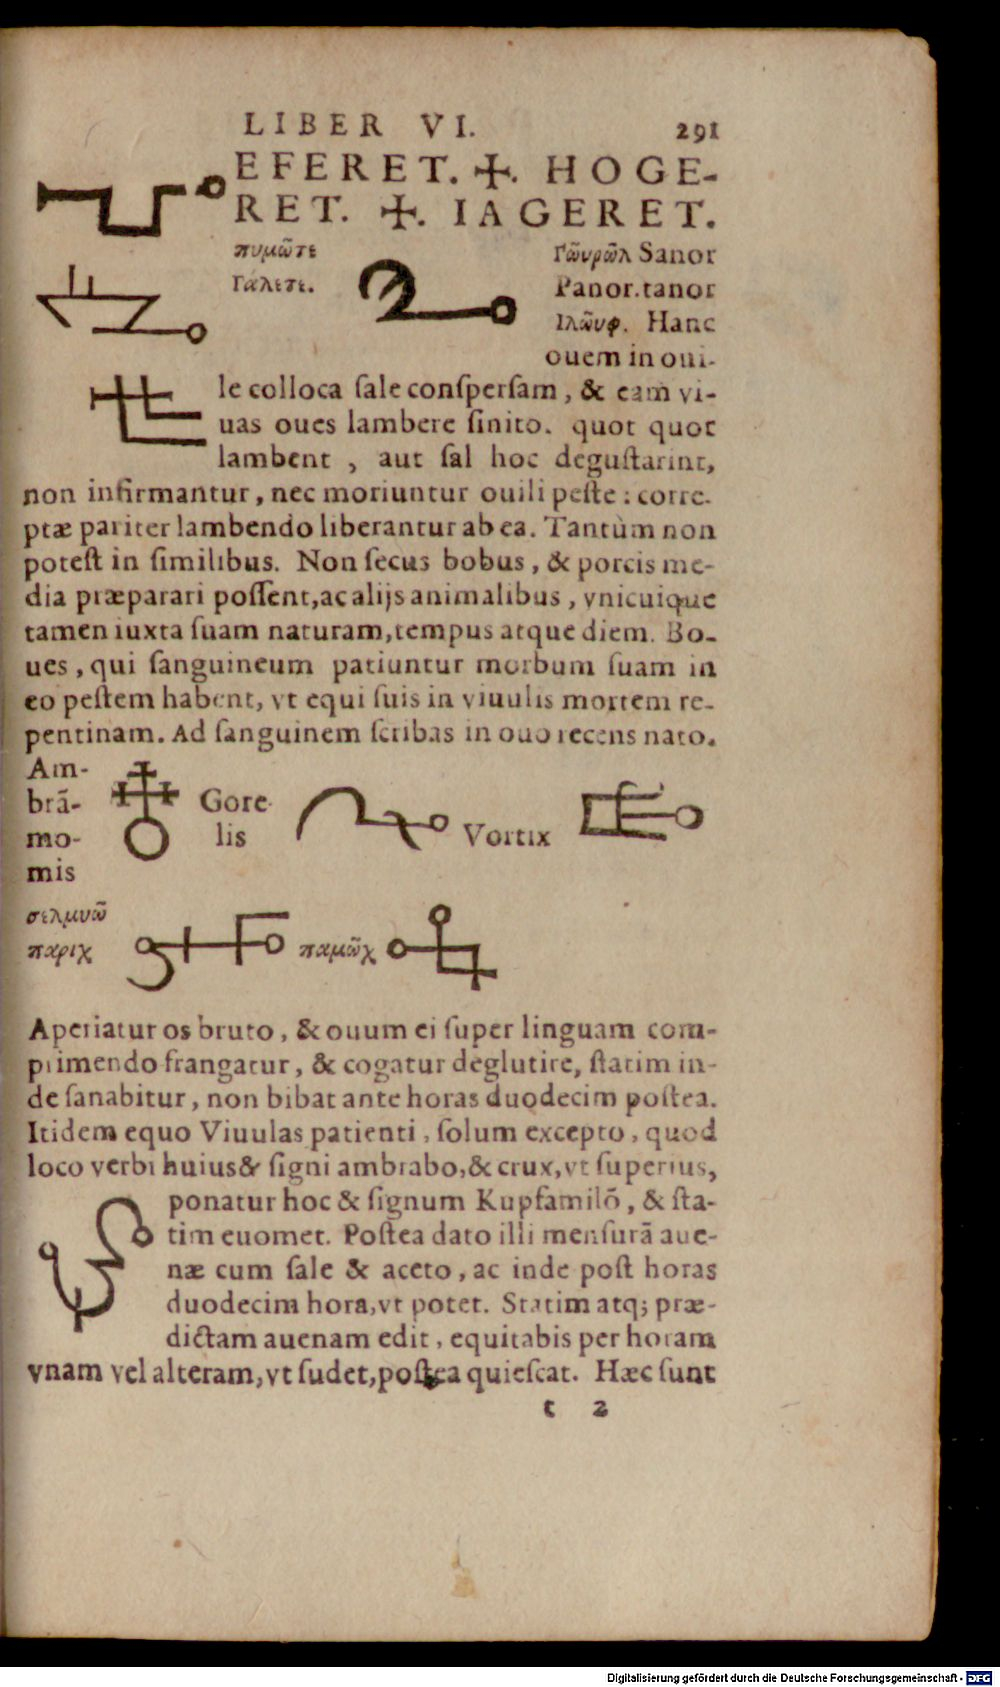 LIBER VI. 291
EFERET. ✠. HOGE-
RET. ✠. IAGERET.
πυμῶτε
Γάλετε.
Γῶυρῶλ Sanor
Panor.tanor
Ιλῶυφ. Hanc
ouem in oui-
le colloca ſale conſperſam, & eam vi-
uas oues lambere ſinito. quot quot
lambent , aut ſal hoc deguſtarint,
non infirmantur, nec moriuntur ouili peſte: corre-
ptæ pariter lambendo liberantur ab ea. Tantùm non
poteſt in ſimilibus. Non ſecus bobus, & porcis me-
dia præparari poſſent, ac alijs animalibus, vnicuique
tamen iuxta ſuam naturam, tempus atque diem. Bo-
ues, qui ſanguineum patiuntur morbum ſuam in
eo peſtem habent, vt equi ſuis in viuulis mortem re-
pentinam. Ad ſanguinem ſcribas in ouo recens nato.
Am-
brā-
mo-
mis
Gore
lis
Vortix
σελμυῶ
παριχ
παμῶχ
Aperiatur os bruto, & ouum ei ſuper linguam com-
primendo frangatur, & cogatur deglutire, ſtatim in-
de ſanabitur, non bibat ante horas duodecim poſtea.
Itidem equo Viuulas patienti, ſolum excepto, quod
loco verbi huius & ſigni ambrabo, & crux, vt ſuperius,
ponatur hoc & ſignum Kupfamilō, & ſta-
tim euomet. Poſtea dato illi menſurā aue-
næ cum ſale & aceto, ac inde poſt horas
duodecim hora, vt potet. Statim atq; præ-
dictam auenam edit, equitabis per horam
vnam vel alteram, vt ſudet, poſtea quieſcat. Hæc ſunt
t 2
Digitalisierung gefördert durch die Deutsche Forschungsgemeinschaft - DFG